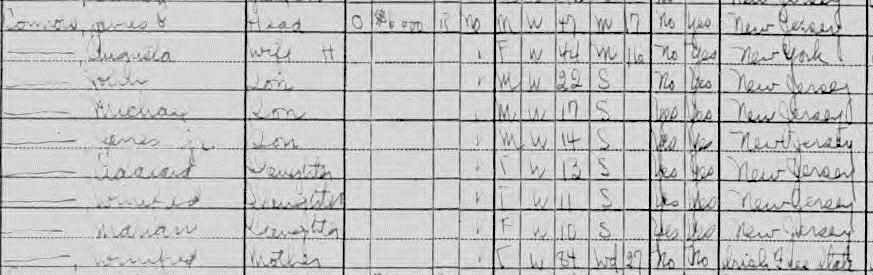 Connors, James F Head O $6,000 R No M W 47 M 17 No Yes New Jersey
—, Augusta Wife H F W 44 M 16 No Yes New York
— John Son M W 22 S No Yes New Jersey
— Son M W 17 S Yes Yes New Jersey
— James Jr Son M W 14 S Yes Yes New Jersey
— Daughter F W 13 S Yes Yes New Jersey
—, Winifred Daughter F W 11 S Yes Yes New Jersey
— Marian Daughter F W 10 S Yes Yes New Jersey
—, Winifred Mother F W 84 Wd 27 No No Irish Free State